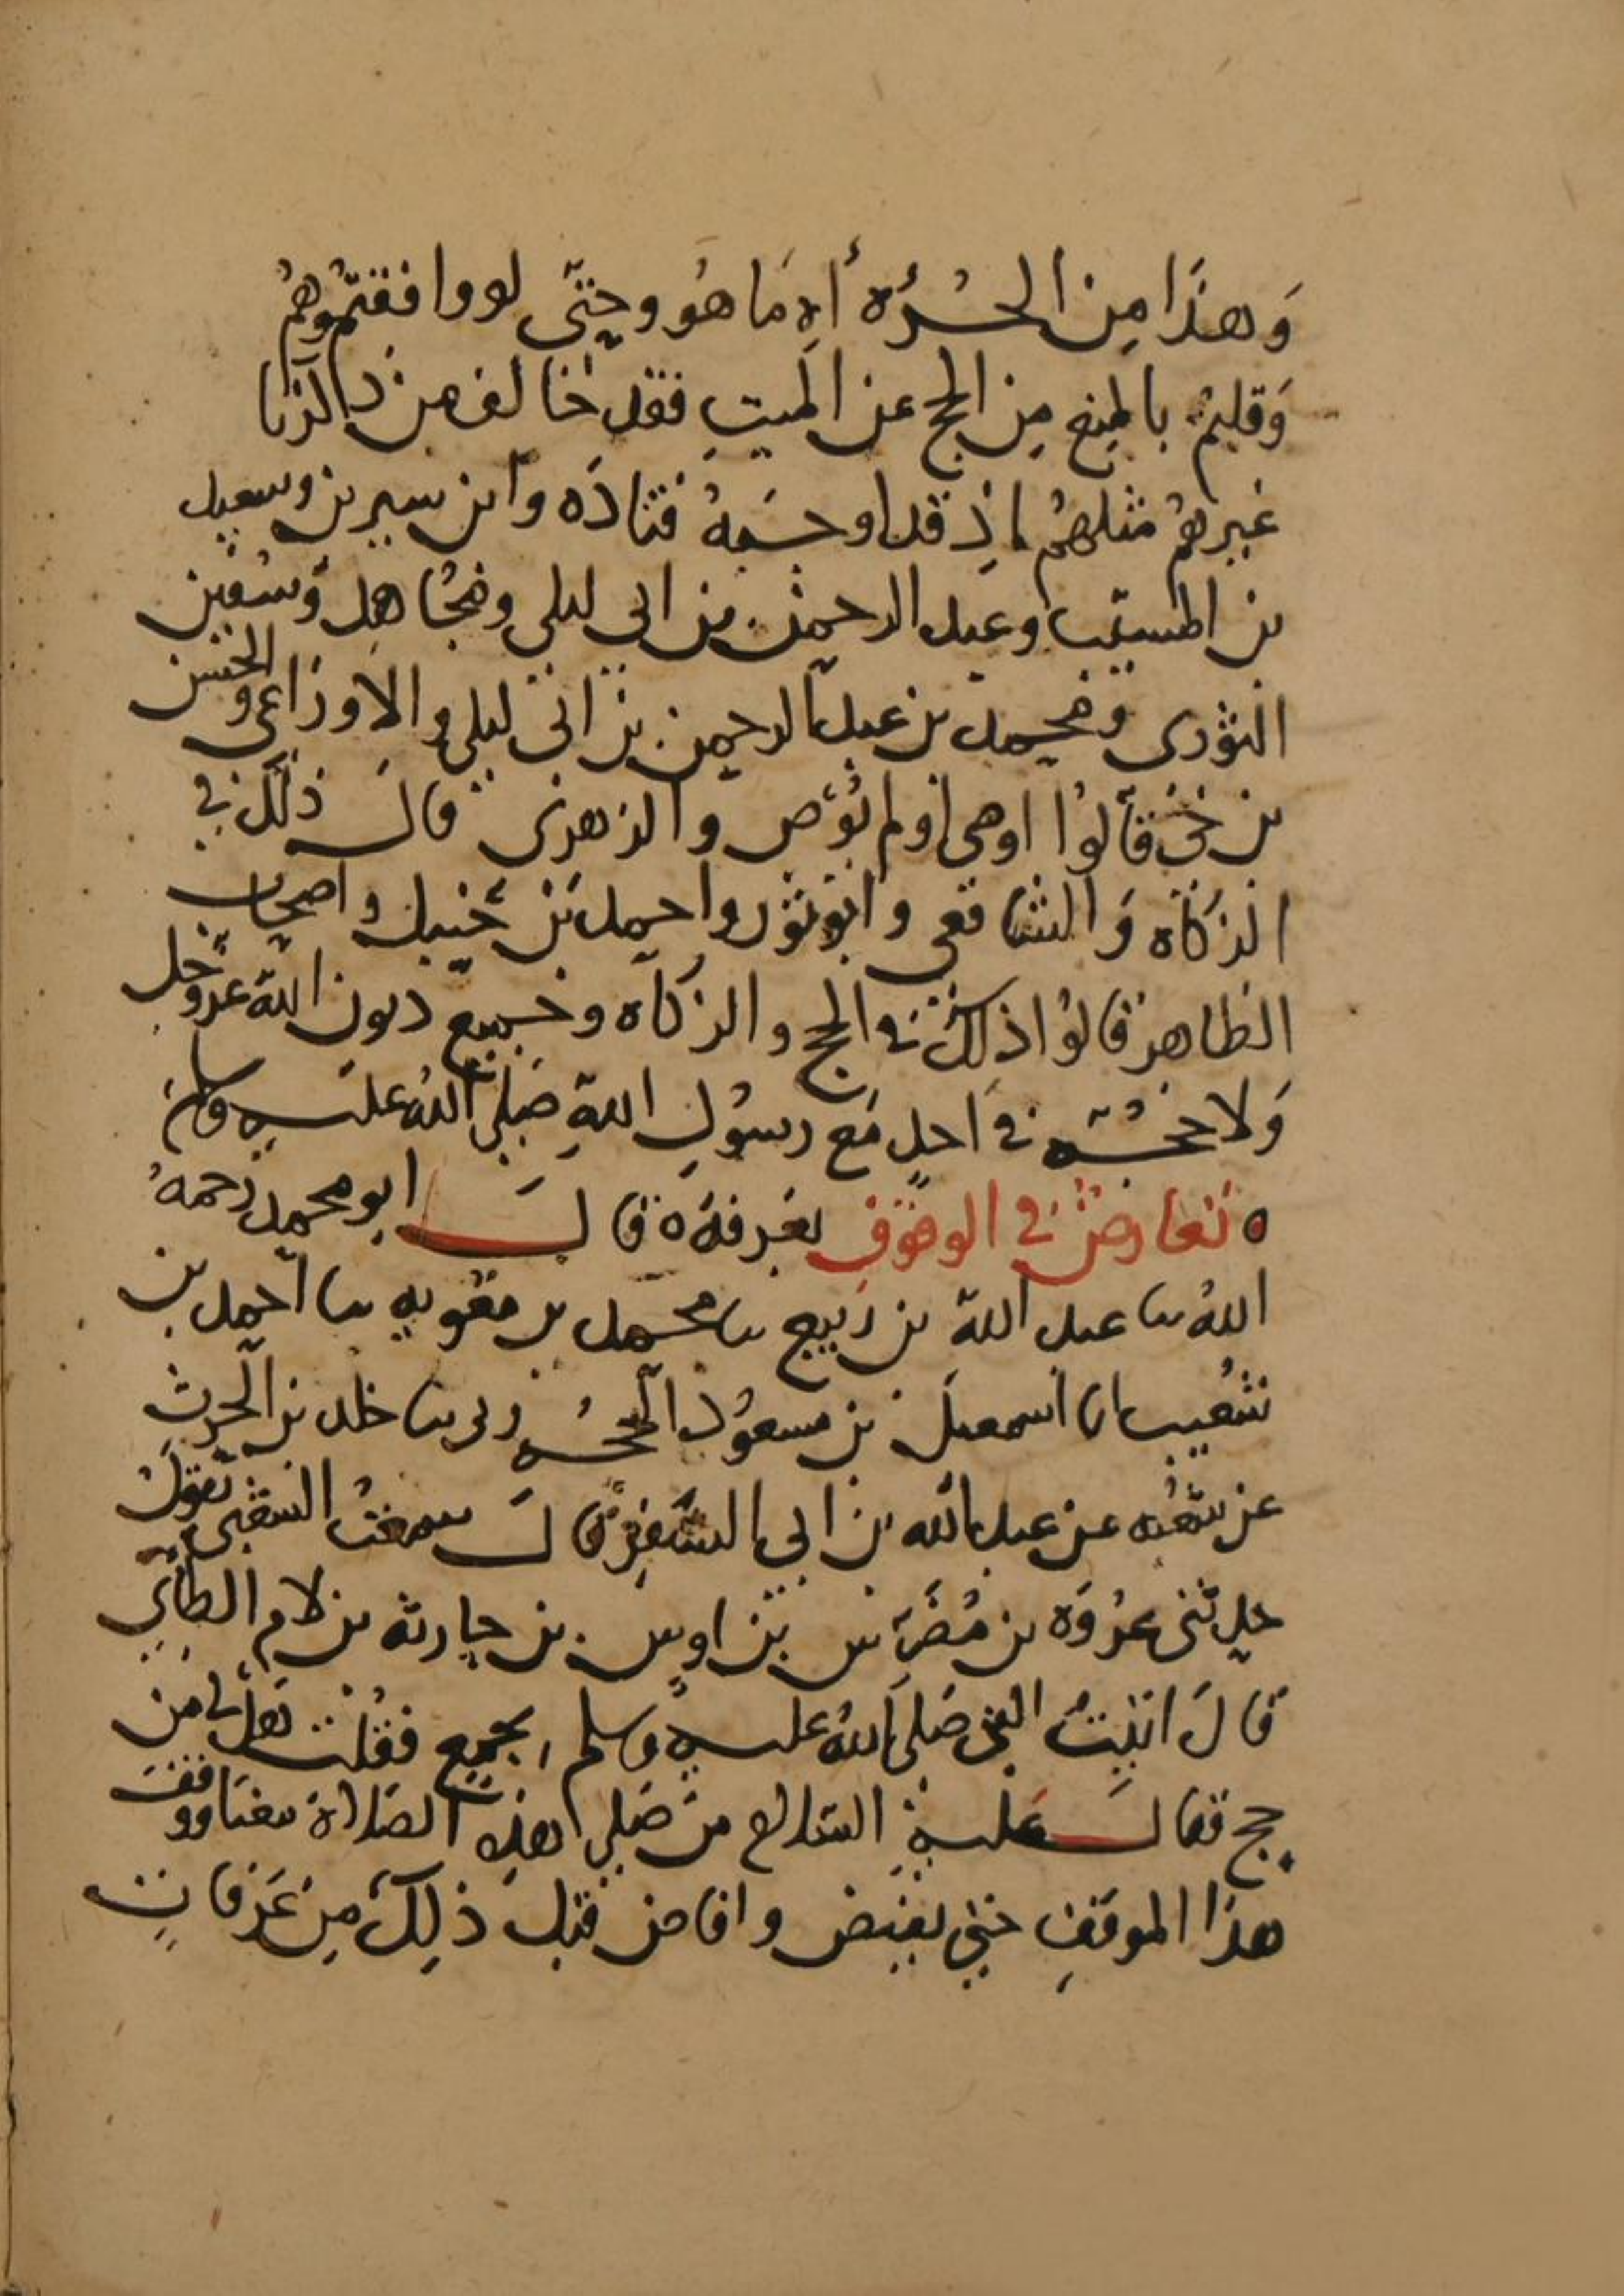 وَهذَا مِن الجُرْأه أهِ مَا هُو وحتَّى لو وافقتمُوهُمُ
وَقلتم بالمنع مِن الحج عن الميتِ فقد خالف من ذكرنا
غيرهمُ مثلهُم اذ قد اوجبَهُ قتادَه وابن سيرين وسعيد
بن المسيّب وعبد الرحمن بن ابي ليلى ومجُاهِد وَسُفين
الثورى ومحمد بن عبد الرحمن بن ابي ليلى والاوزاعى والحسَن
بن حَىّ قالوا اوصى او لم يُوص والزهرى قالَ ذلك في
الزكاه وَالشافعى وابو ثور واحمد بن حنبل واصحاب
الظاهر قالوا ذلك في الحج والزكاه وجميع ديون الله عز وجل
وَلا حجُّه في احدٍ مَع رسُولِ اللهِ صَلى اللهُ عليهِ وسلم
ه تعَارضُ في الوقوفِ بعَرفهَ ه قالَ ابو محمد رَحمهُ
اللهُ ىا عبد الله بن رَبيع ىا محمد بن معَويه ىا احمد بن
شعُيب انا اسمعيل بن مسعوُد الجحدُرى ىا خلد بن الحرث
عن شعُبه عن عبد الله بن ابي السَّفَر قالَ سمعتُ الشعبى يقولُ
حدثنى عُروَه بن مُضَرِّس بن اوسٍ بن حارثه بن لام الطاي
قالَ اتيتُ النبي صَلى اللهُ عليهِ وسلم بجمعٍ فقُلت هَل لى من
حج فقالَ عَليهِ السَّلام من صَلى هذِه الصَلاة معنَا ووقفَ
هذا الموقفِ حتي يفيض وافاض قبل ذلِكَ مِن عَرفاتٍ